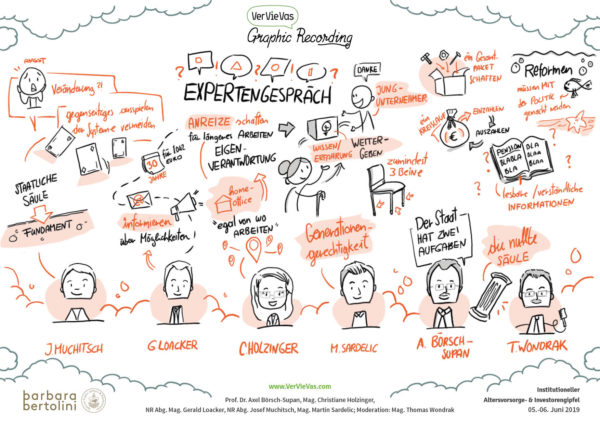 VerVieVas
Graphic Recording
ANGST
Veränderung?!
gegenseitiges ausspielen
der Systeme vermeiden
STAATLICHE
SÄULE
FUNDAMENT
EXPERTENGESPRÄCH
ANREIZE schaffen
für längeres ARBEITEN
EIGEN-
VERANTWORTUNG
30
JAHRE
EURO
informieren
über Möglichkeiten!
home-
office
"egal von wo
ARBEITEN"
DANKE
JUNG-
UNTERNEHMER
WISSEN/
ERFAHRUNG
WEITER-
GEBEN
zumindest
3 Beine
Generationen-
gerechtigkeit
ein Gesamt-
PAKET
SCHAFFEN
ein
KREISLAUF
EINZAHLEN
€
AUSZAHLEN
Reformen
müssen MIT
der POLITIK
gemacht werden
PENSION
BLABLA
BLA
BLA
BLAA
BLAA
lesbare/verständliche
INFORMATIONEN
Der Staat
HAT ZWEI
AUFGABEN
die nullte
SÄULE
J. MUCHITSCH
G LOACKER
C HOLZINGER
M. SARDELIC
A. BÖRSCH-
SUPAN
T. WONDRAK
barbara
bertolini
www.VerVieVas.com
Prof. Dr. Axel Börsch-Supan, Mag. Christiane Holzinger,
NR Abg. Mag. Gerald Loacker, NR Abg. Josef Muchitsch, Mag. Martin Sardelic; Moderation: Mag. Thomas Wondrak
Institutioneller
Altersvorsorge- & Investorengipfel
05.-06. Juni 2019